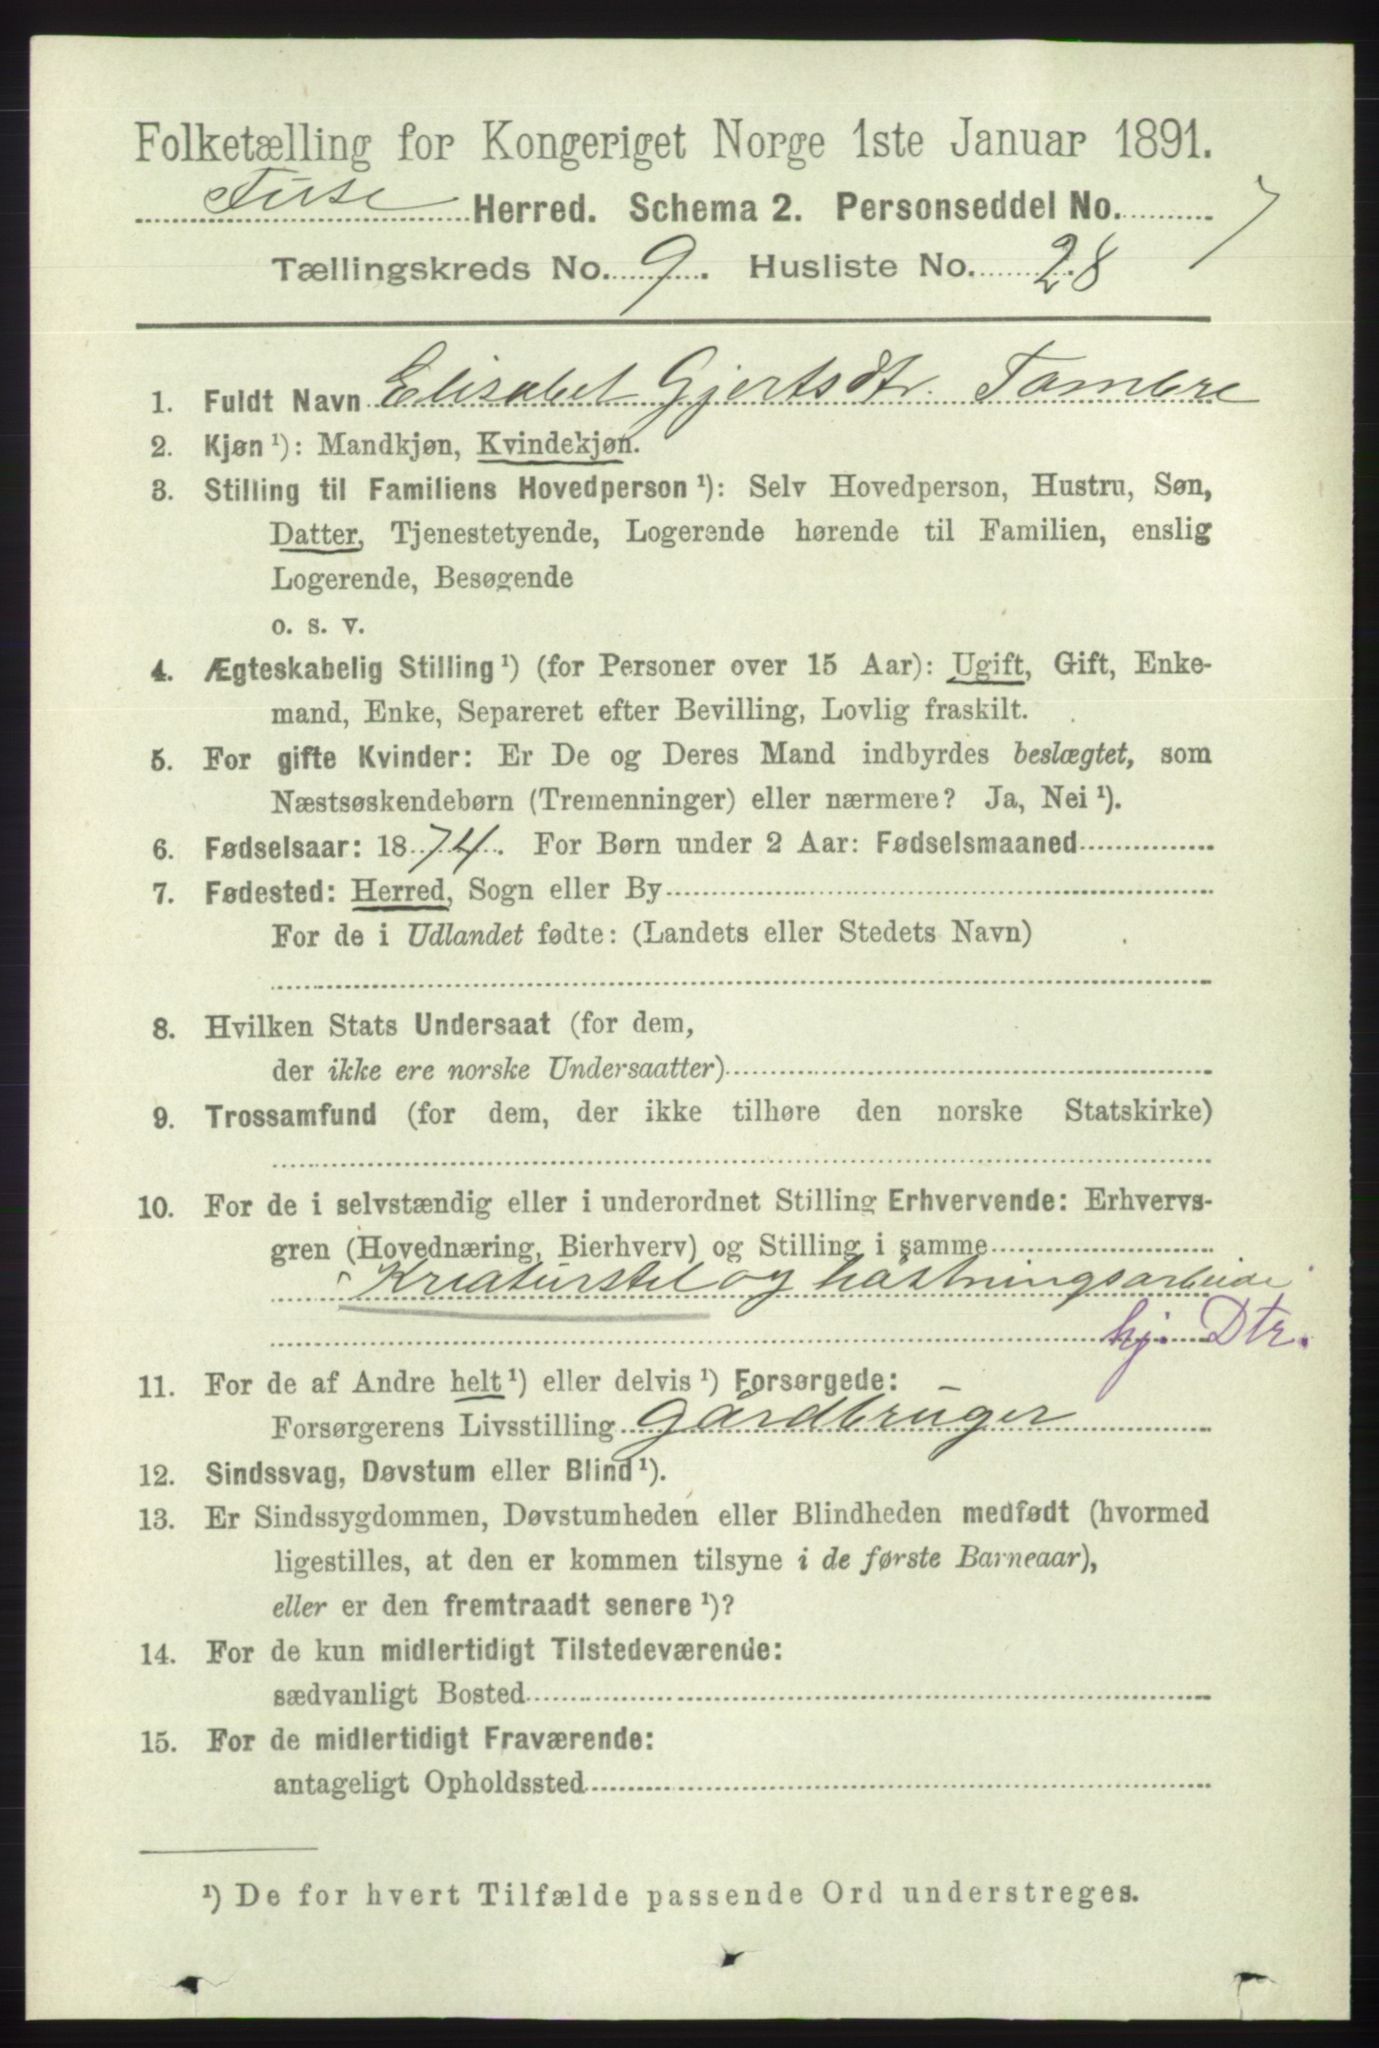 Folketælling for Kongeriget Norge 1ste Januar 1891.
Fuse Herred. Schema 2. Personseddel No. 7
Tællingskreds No. 9. Husliste No. 28
1. Fuldt Navn Elisabet Gjertsdtr. Tombre
2. Kjøn ¹): Mandkjøn, Kvindekjøn.
3. Stilling til Familiens Hovedperson ¹): Selv Hovedperson, Hustru, Søn,
Datter, Tjenestetyende, Logerende hørende til Familien, enslig
Logerende, Besøgende
o. s. v.
4. Ægteskabelig Stilling ¹) (for Personer over 15 Aar): Ugift, Gift, Enke-
mand, Enke, Separeret efter Bevilling, Lovlig fraskilt.
5. For gifte Kvinder: Er De og Deres Mand indbyrdes beslægtet, som
Næstsøskendebørn (Tremenninger) eller nærmere? Ja, Nei ¹).
6. Fødselsaar: 1874. For Børn under 2 Aar: Fødselsmaaned
7. Fødested: Herred, Sogn eller By
For de i Udlandet fødte: (Landets eller Stedets Navn)
8. Hvilken Stats Undersaat (for dem,
der ikke ere norske Undersaatter)
9. Trossamfund (for dem, der ikke tilhøre den norske Statskirke)
10. For de i selvstændig eller i underordnet Stilling Erhvervende: Erhvervs-
gren (Hovednæring, Bierhverv) og Stilling i samme
Kreaturstel og høstningsarbeide
hj. Dtr.
11. For de af Andre helt ¹) eller delvis ¹) Forsørgede:
Forsørgerens Livsstilling Gårdbruger
12. Sindssvag, Døvstum eller Blind ¹).
13. Er Sindssygdommen, Døvstumheden eller Blindheden medfødt (hvormed
ligestilles, at den er kommen tilsyne i de første Barneaar),
eller er den fremtraadt senere ¹)?
14. For de kun midlertidigt Tilstedeværende:
sædvanligt Bosted
15. For de midlertidigt Fraværende:
antageligt Opholdssted
¹) De for hvert Tilfælde passende Ord understreges.